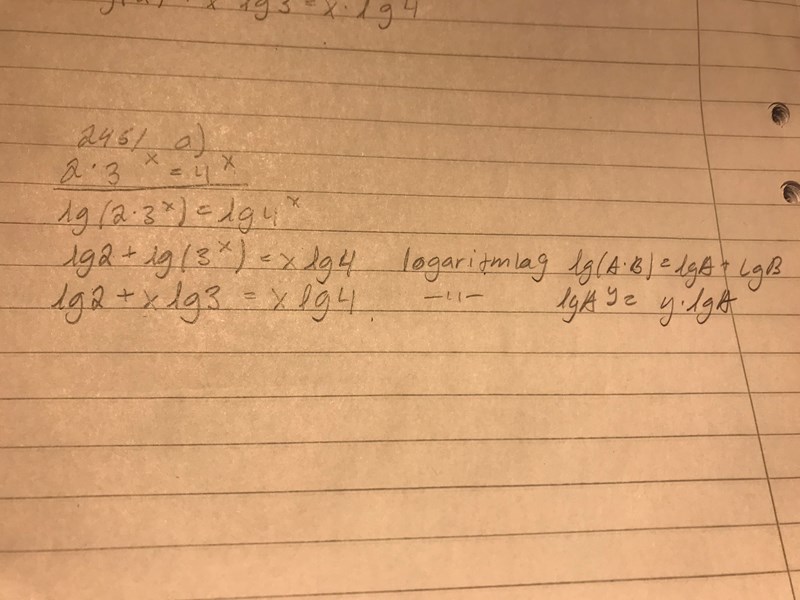 x lg 3 = x · lg 4
245/ a)
2 · 3^x = 4^x
lg(2·3^x) = lg 4^x
lg2 + lg(3^x) = x lg4 logaritmlag lg(A·B) = lgA + lgB
lg2 + x lg3 = x lg4 —"— lgA^y = y·lgA